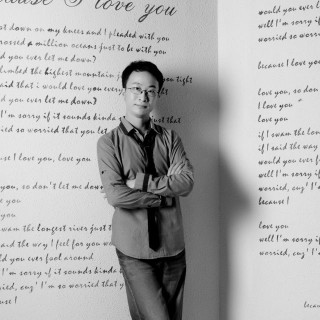 cause I love you
t down on my knees and I pleaded with you
rossed a million oceans just to be with you
d you ever let me down)
limbed the highest mountain j you tight
aid that i would love you every ght
d you ever let me down)
I'm sorry if it sounds kinda that
so worried that you let
se I love you, love you
you, so don't let me down
e you
e you
wam the longest river just t
aid the way I feel for you wa
ld you ever fool around
I'm sorry if it sounds kinda
so worried, cuz' I'm so worried that y
e!
would you ever l
well I'm sorry if
worried so worrie
because I love you
love you, so don
I love you
love you
if I swam the long
if I said the way
would you ever f
well I'm sorry if
worried, cuz' I'm s
because!
love you
well I'm sorry if
worried, cuz' I'm
becau